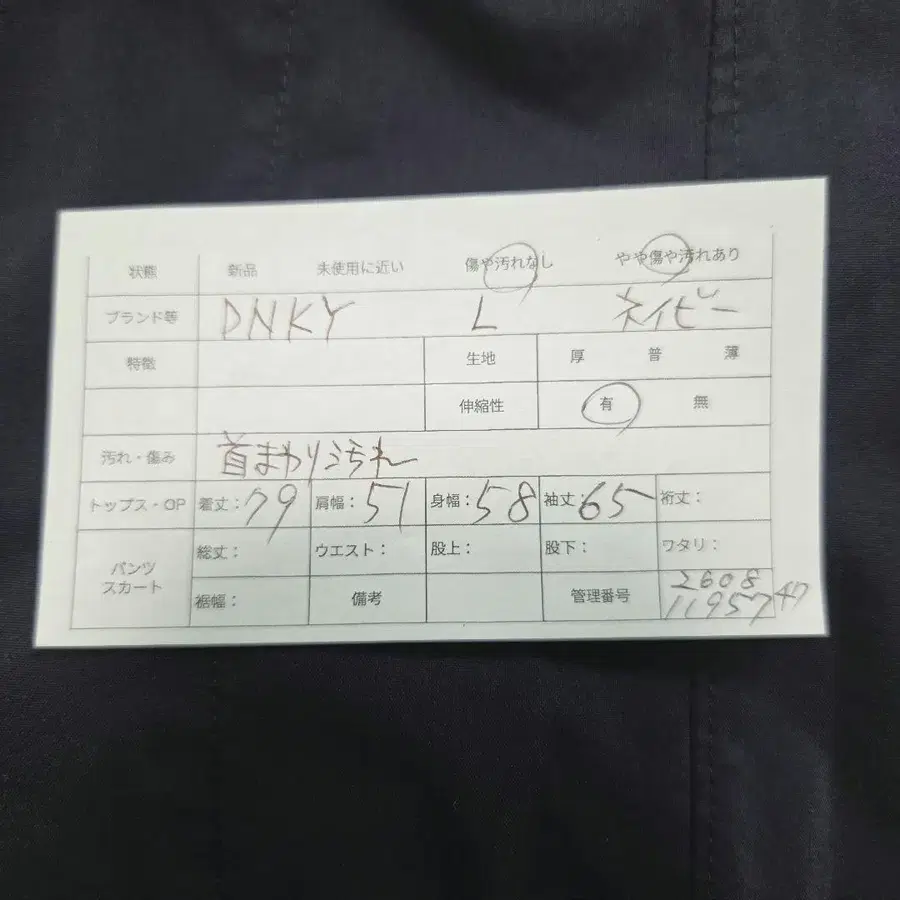 状態 新品 未使用に近い 傷や汚れなし やや傷や汚れあり
ブランド等 DNKY L ネイビー
特徴 生地 厚 普 薄
伸縮性 有 無
汚れ・傷み 首まわり汚れ
トップス・OP 着丈:79 肩幅:51 身幅:58 袖丈:65 裄丈:
パンツ スカート 総丈: ウエスト: 股上: 股下: ワタリ:
裾幅: 備考 管理番号 2608
11957 47